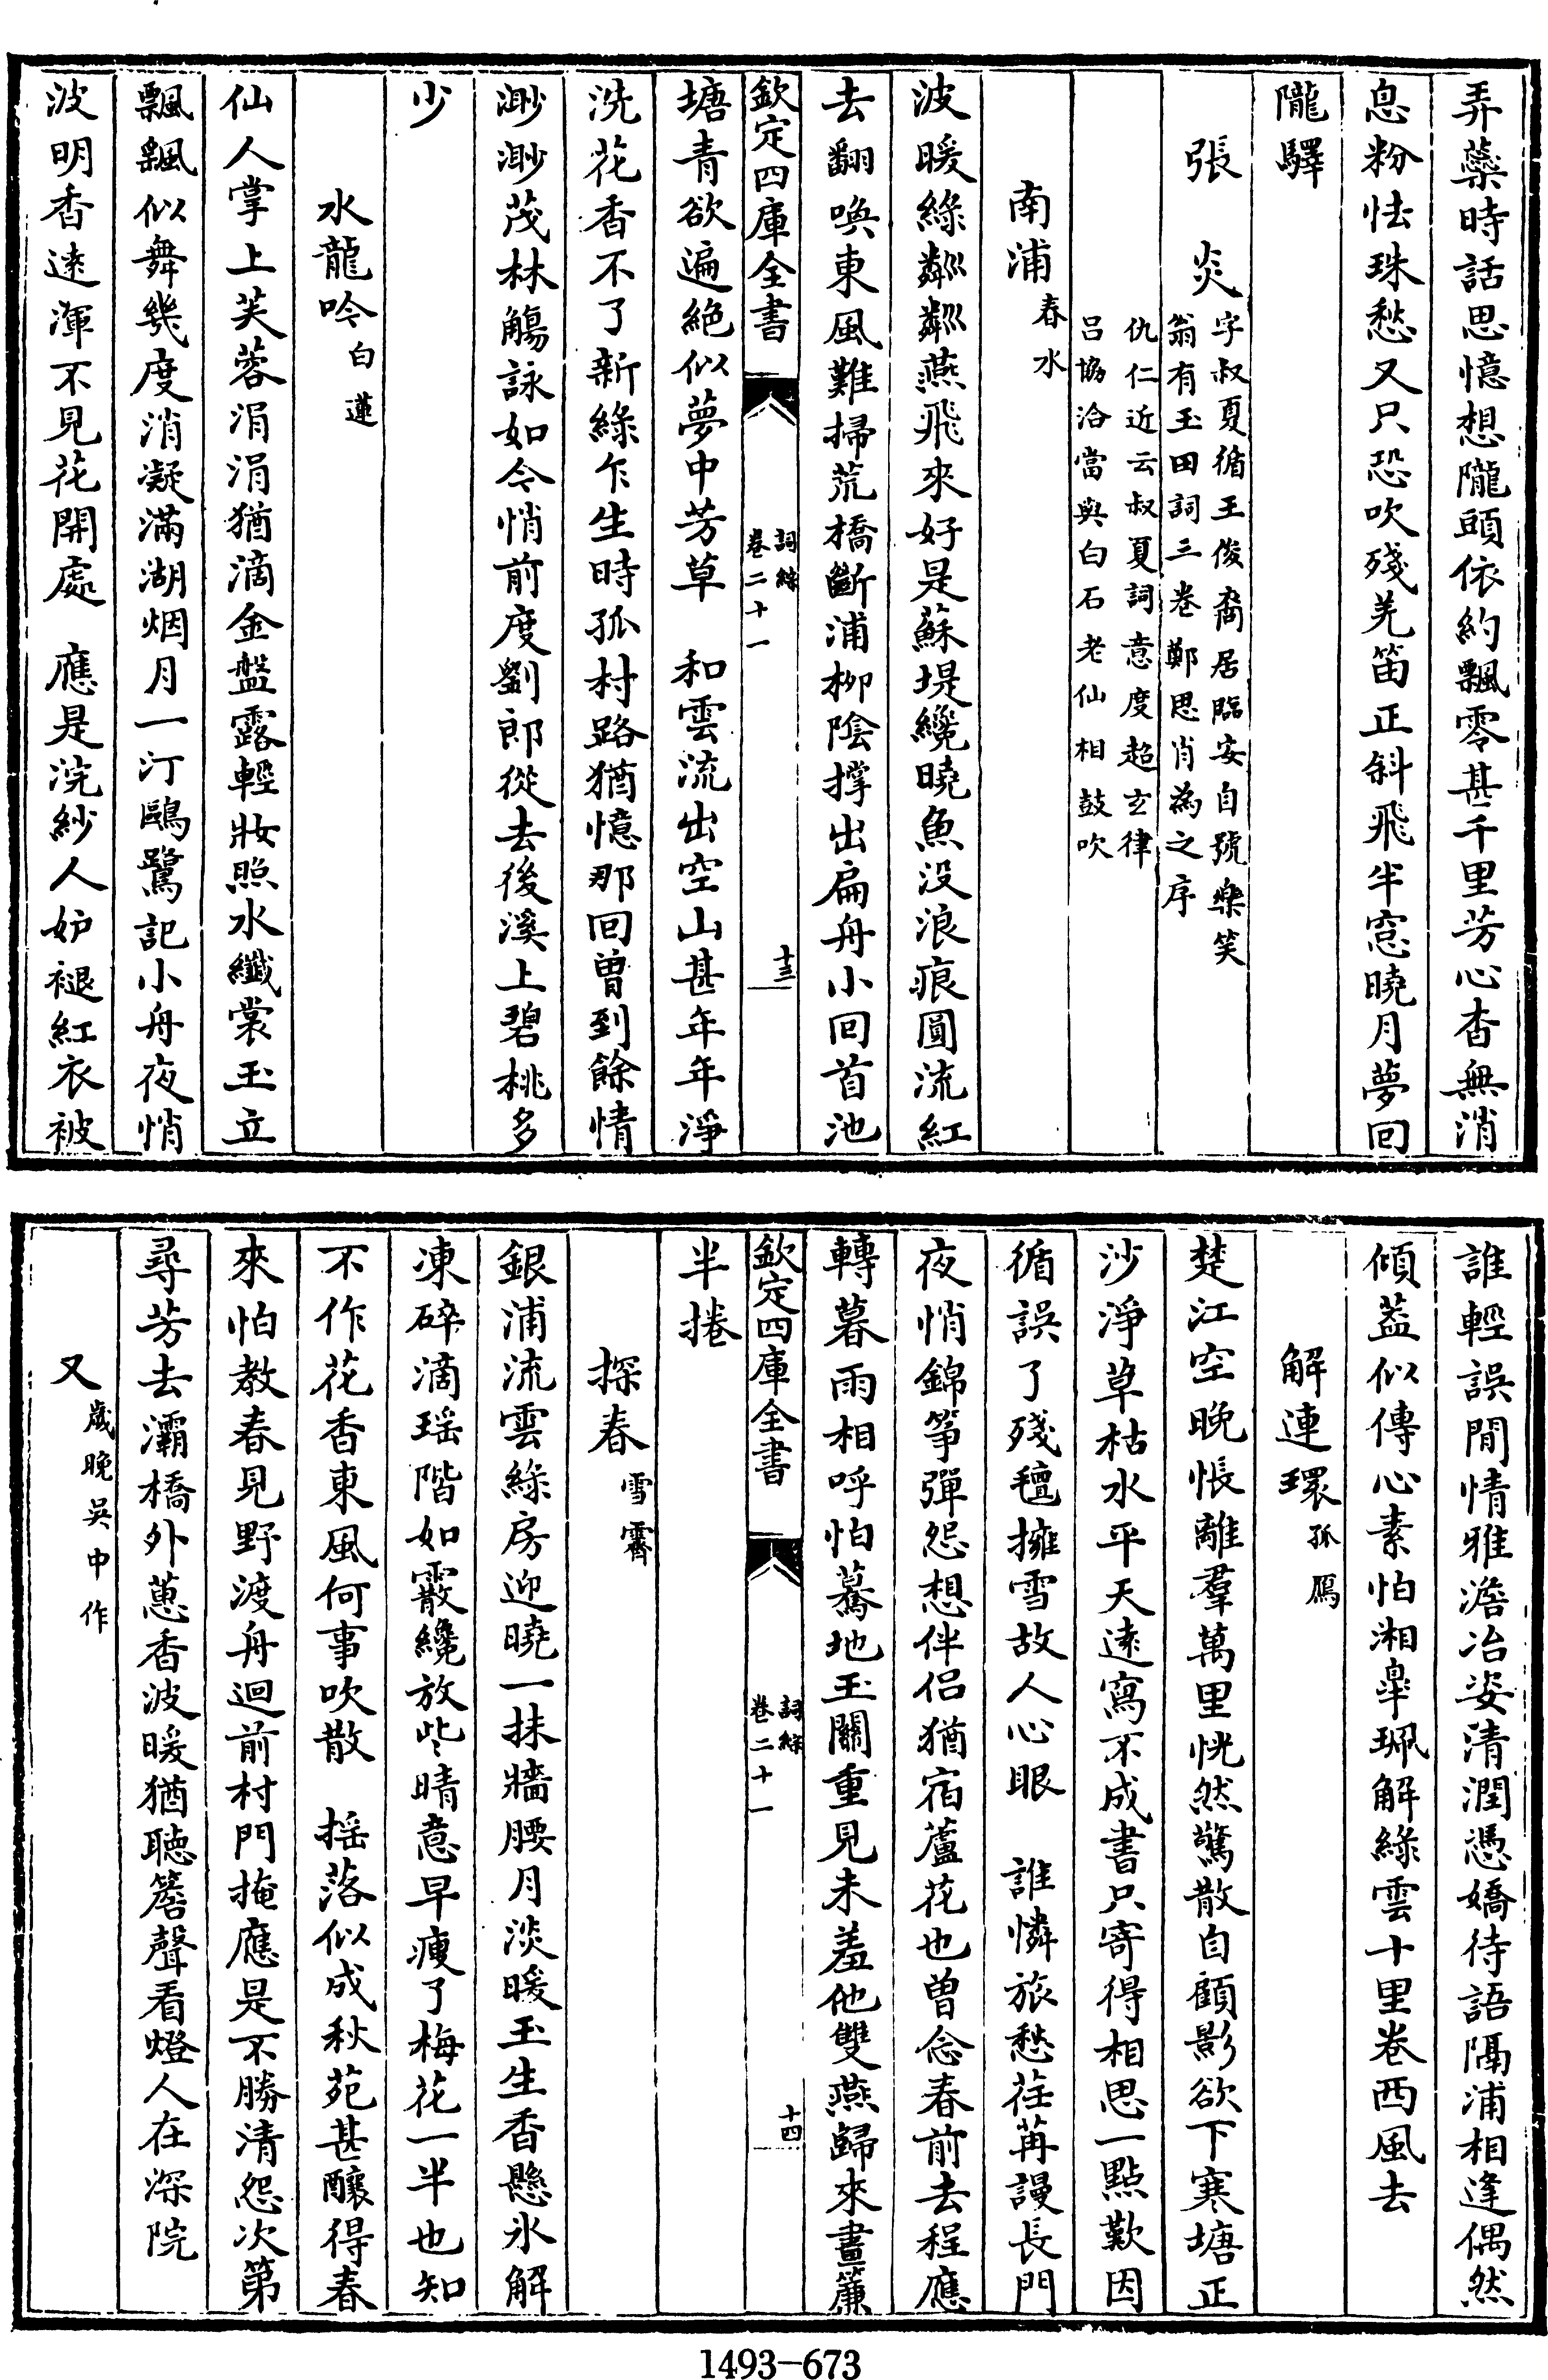 弄藥時話思憶想隴頭依約飄零甚千里芳心杳無消
息粉怯珠愁又只恐吹殘羌笛正斜飛半窓曉月夢回
隴驛
張　炎
字叔夏循王俊裔居臨安自號樂笑
翁有玉田詞三卷鄭思肖為之序
仇仁近云叔夏詞意度超玄律
呂協洽當與白石老仙相鼓吹
南浦春水
波暖綠粼粼燕飛來好是蘇堤纔曉魚没浪痕圓流紅
去翻喚東風難掃荒橋斷浦柳陰撑出扁舟小回首池
欽定四庫全書
詞綜
卷二十一
十三
塘青欲遍絕似夢中芳草　和雲流出空山甚年年淨
洗花香不了新綠乍生時孤村路猶憶那回曽到餘情
渺渺茂林觴詠如今悄前度劉郎從去後溪上碧桃多
少
水龍吟白蓮
仙人掌上芙蓉涓涓猶滴金盤露輕妝照水纖裳玉立
飄飄似舞幾度消凝滿湖烟月一汀鷗鷺記小舟夜悄
波明香逺渾不見花開處　應是浣紗人妒褪紅衣被
誰輕誤閒情雅澹冶姿清潤憑嬌待語隔浦相逢偶然
傾葢似傳心素怕湘臯珮解綠雲十里卷西風去
解連環孤鴈
楚江空晚悵離羣萬里恍然驚散自顧影欲下寒塘正
沙淨草枯水平天逺寫不成書只寄得相思一點歎因
循誤了殘氊擁雪故人心眼　誰憐旅愁荏苒謾長門
夜悄錦筝彈怨想伴侣猶宿蘆花也曽念春前去程應
轉暮雨相呼怕驀地玉關重見未羞他雙燕歸來畫簾
欽定四庫全書
詞綜
卷二十一
十四
半捲
探春雪霽
銀浦流雲綠房迎曉一抹牆腰月淡暖玉生香懸氷解
凍碎滴瑶階如霰纔放些晴意早瘦了梅花一半也知
不作花香東風何事吹散　揺落似成秋苑甚釀得春
來怕教春見野渡舟迴前村門掩應是不勝清怨次第
尋芳去灞橋外蕙香波暖猶聽簷聲看燈人在深院
又歲晚吳中作
1493-673